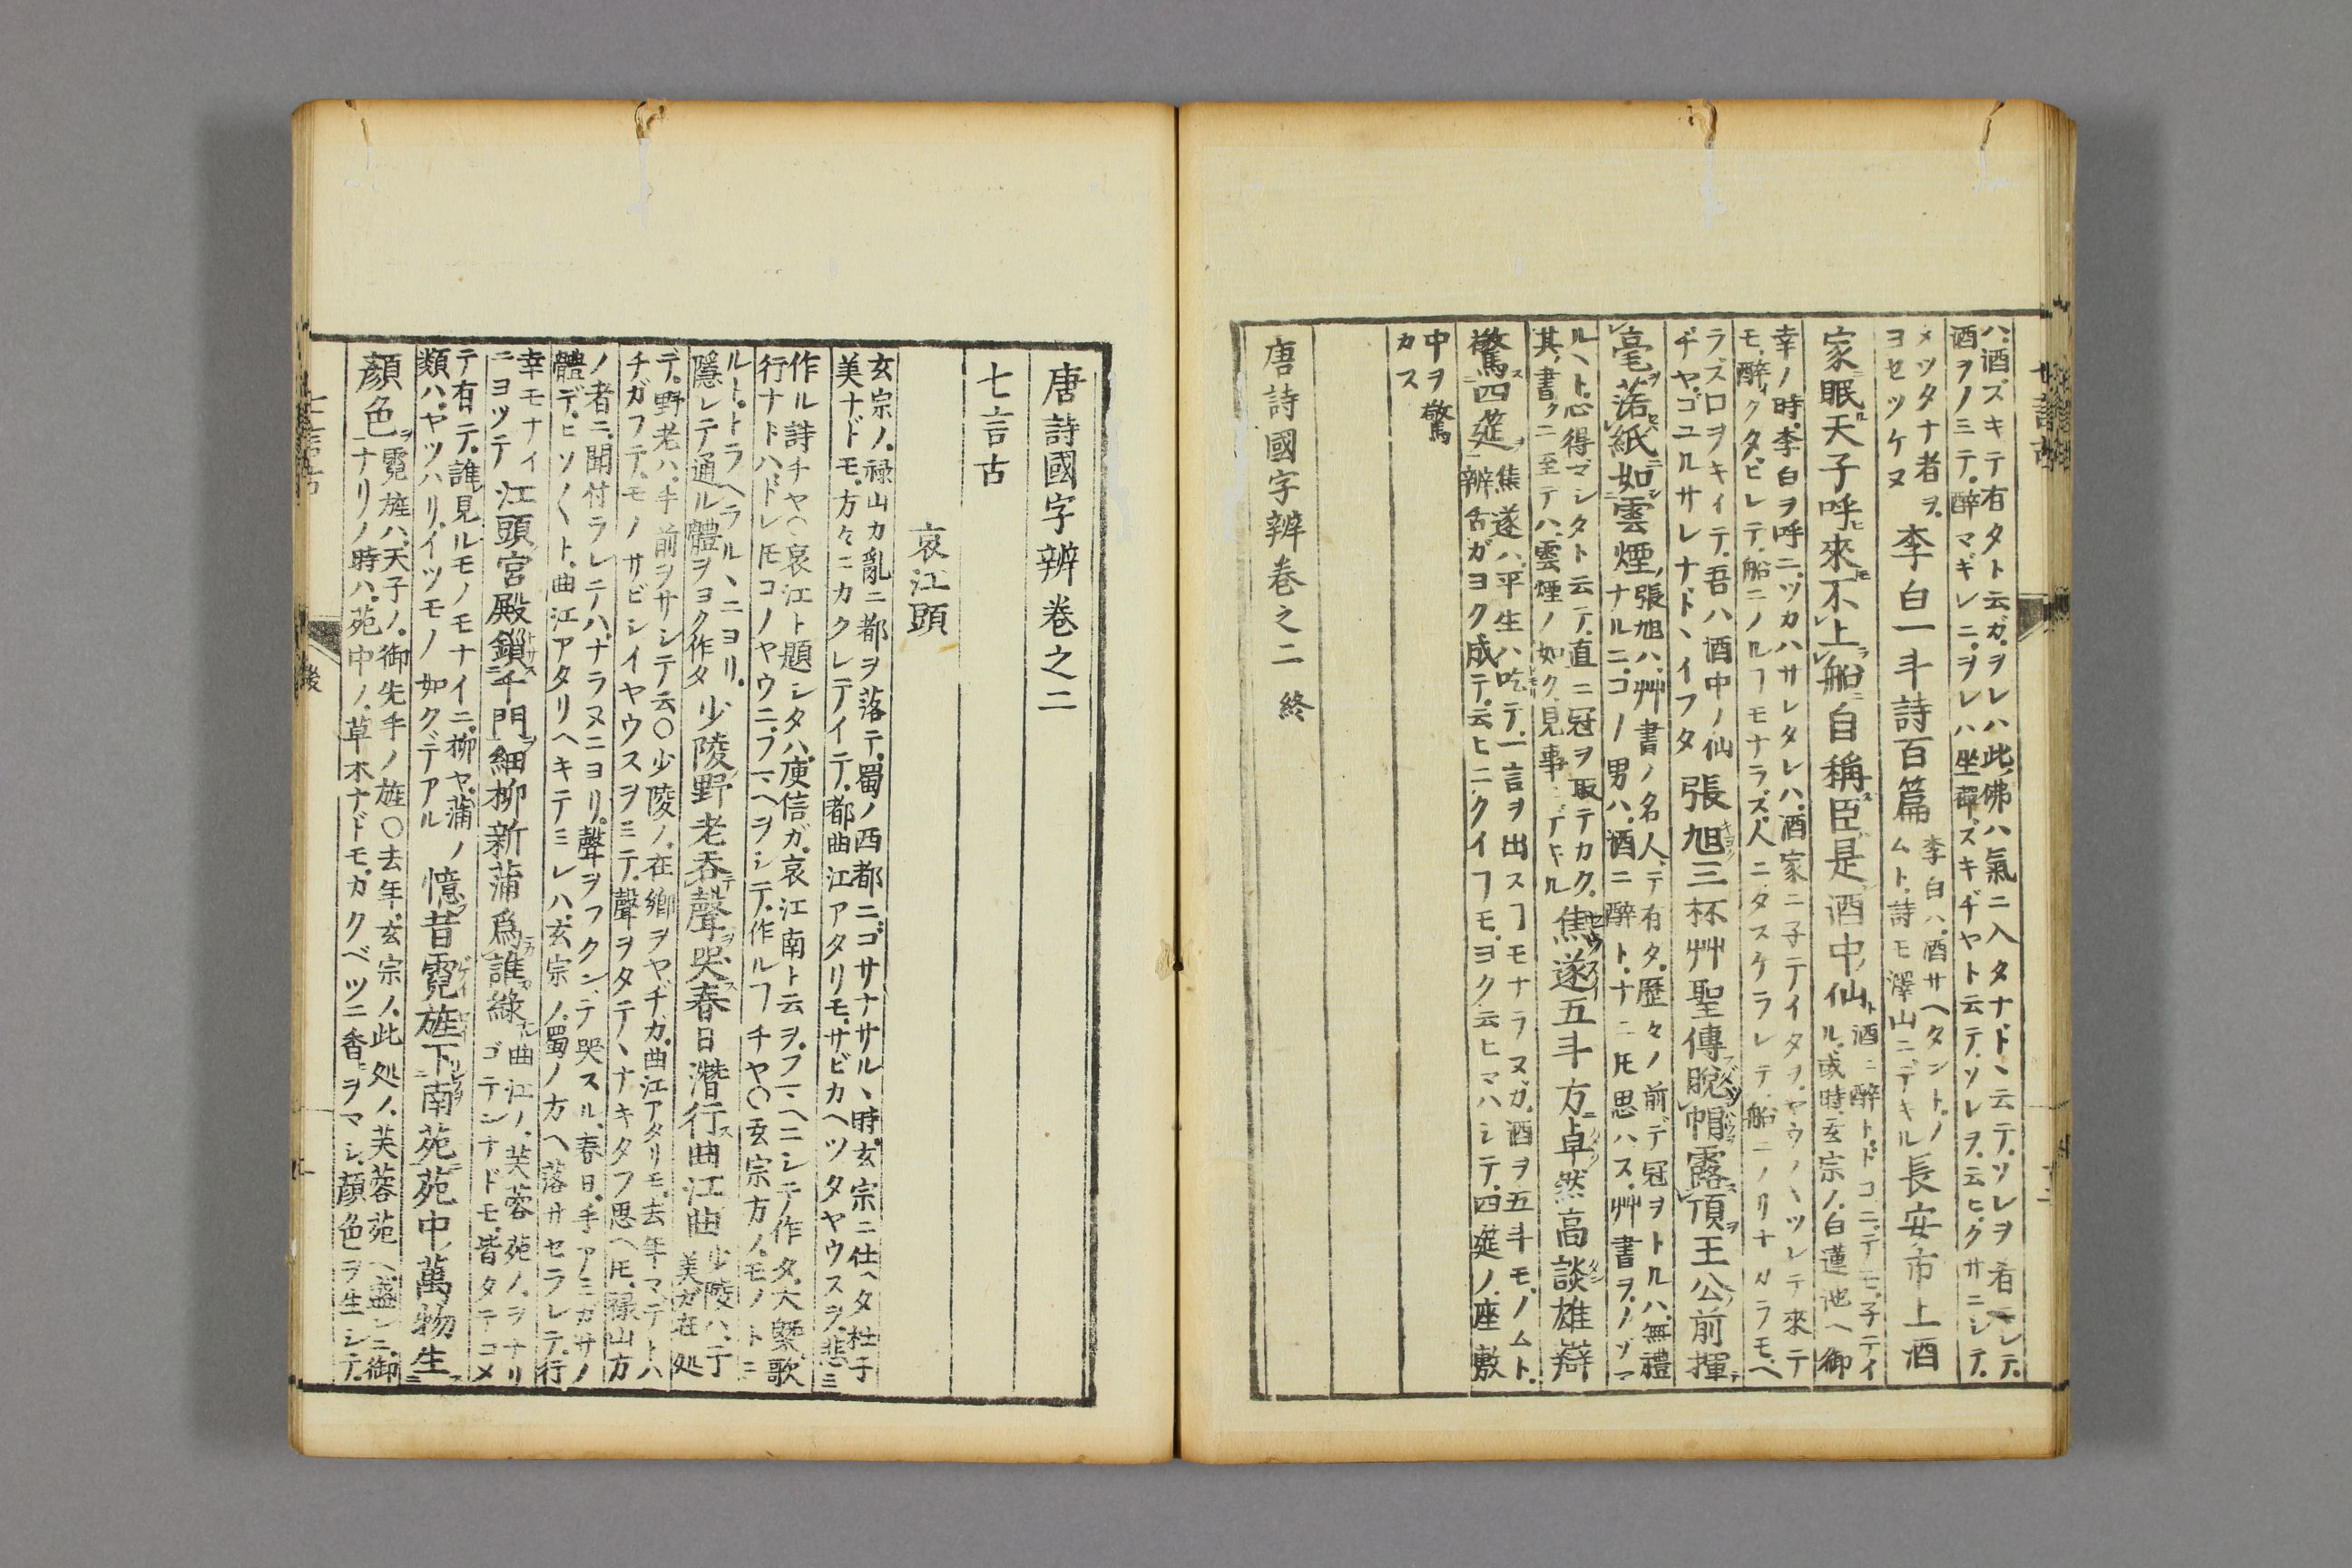 ハ酒ズキテ有タト云ガヲレハ此佛ハ氣ニ入タナドヽ云テソレヲ看ニシテ
酒ヲノミテ醉マギレニヲレハ坐禪ズキヂヤト云テソレヲ云ヒクサニシテ
メツタナ者ヲ
ヨセツケヌ
李白一斗詩百篇
李白ハ酒サヘタントノ
ムト詩モ澤山ニデキル
長安市上酒
家眠天子呼來不上船自稱臣是酒中仙
酒ニ醉トドコニテモ子テイ
ル或時玄宗ノ白蓮池ヘ御
幸ノ時李白ヲ呼ニツカハサレタレハ酒家ニ子テイタヲヤウ〱ツレテ來テ
モ醉クタビレテ船ニノルヿモナラズ人ニタスケラレテ船ニノリナカラモヘ
ラズ口ヲキイテ吾ハ酒中ノ仙
ヂヤゴユルサレナドヽイフタ
張旭三杯艸聖傳脫帽露頂王公前揮
毫落紙如雲煙
張旭ハ艸書ノ名人デ有タ歷々ノ前デ冠ヲトルハ無禮
ナルニコノ男ハ酒ニ醉トナニ𪜈思ハス艸書ヲノゾマ
ルヽト心得マシタト云テ直ニ冠ヲ取テカク
其書クニ至テハ雲煙ノ如ク見事ニデキル
焦遂五斗方卓然高談雄辯
驚四筵
焦遂ハ平生ハ吃テ一言ヲ出スヿモナラヌガ酒ヲ五斗モノムト
辨舌ガヨク成テ云ヒニクイヿモヨク云ヒマハシテ四筵ノ座敷
中ヲ驚
カス
唐詩國字辨卷之二 終
唐詩國字辨卷之二
七言古
哀江頭
玄宗ノ祿山カ亂ニ都ヲ落テ蜀ノ西都ニゴサナサルヽ時玄宗ニ仕ヘタ杜子
美ナドモ方々ニカクレテイテ都曲江アタリモサビカヘツタヤウスヲ悲ミ
作ル詩チヤ〇哀江ト題シタハ庾信ガ哀江南ト云ヲフマヘニシテ作タ大槩歌
行ナトハドレ𪜈コノヤウニフマヘヲシテ作ルヿチヤ〇玄宗方ノモノトニ
ルトトラヘラルヽニヨリ
隱レテ通ル體ヲヨク作タ
少陵野老吞聲哭春日潛行曲江曲
少陵ハ子
美ガ在処
デ野老ハ手前ヲサシテ云〇少陵ノ在鄉ヲヤヂカ曲江アタリモ去年マテトハ
チガフテモノサビシイヤウスヲミテ聲ヲタテヽナキタフ思ヘ𪜈祿山方
ノ者ニ聞付ラレテハナラヌニヨリ聲ヲフクンテ哭スル春日手アミカサノ
體デヒソ〱ト曲江アタリヘキテミレハ玄宗ノ蜀ノ方ヘ落サセラレテ行
幸モナイ
ニヨツテ
江頭宮殿鎖千門細柳新蒲爲誰綠
曲江ノ芙蓉苑ノヲナリ
ゴテンナドモ皆タテコメ
テ有テ誰見ルモノモナイニ柳ヤ蒲ノ
類ハヤツハリイツモノ如クデアル
憶昔霓旌下南苑苑中萬物生
顏色
霓旌ハ天子ノ御先手ノ旌〇去年玄宗ノ此処ノ芙蓉苑ヘ盛ンニ御
ナリノ時ハ苑中ノ草木ナドモカクベツニ香ヲマシ顏色ヲ生シテ